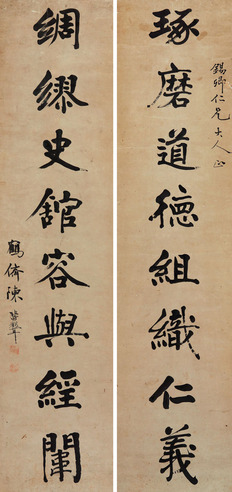 琢磨道德組織仁義
錫卿仁兄大人正
綢繆史館容與經闈
鶴儕陳